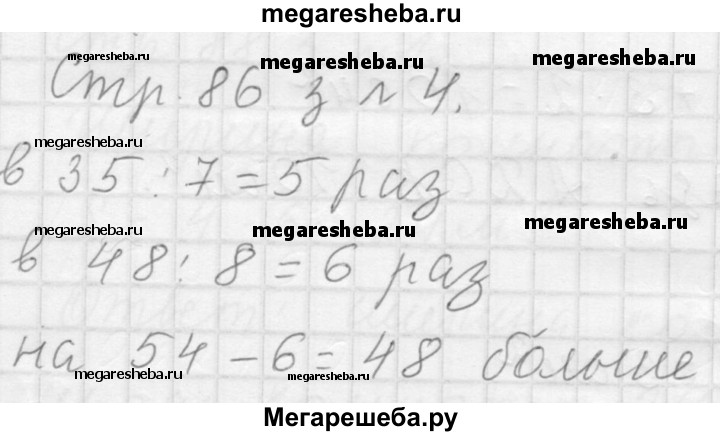 megaresheba.ru
megaresheba.ru megaresheba.ru megaresheba.ru
Стр. 86 з № 4.
megaresheba.ru
в 35 : 7 = 5 раз
megaresheba.ru megaresheba.ru megaresheba.ru
в 48 : 8 = 6 раз
на 54 - 6 = 48 больше
megaresheba.ru megaresheba.ru
Мегарешеба.ру